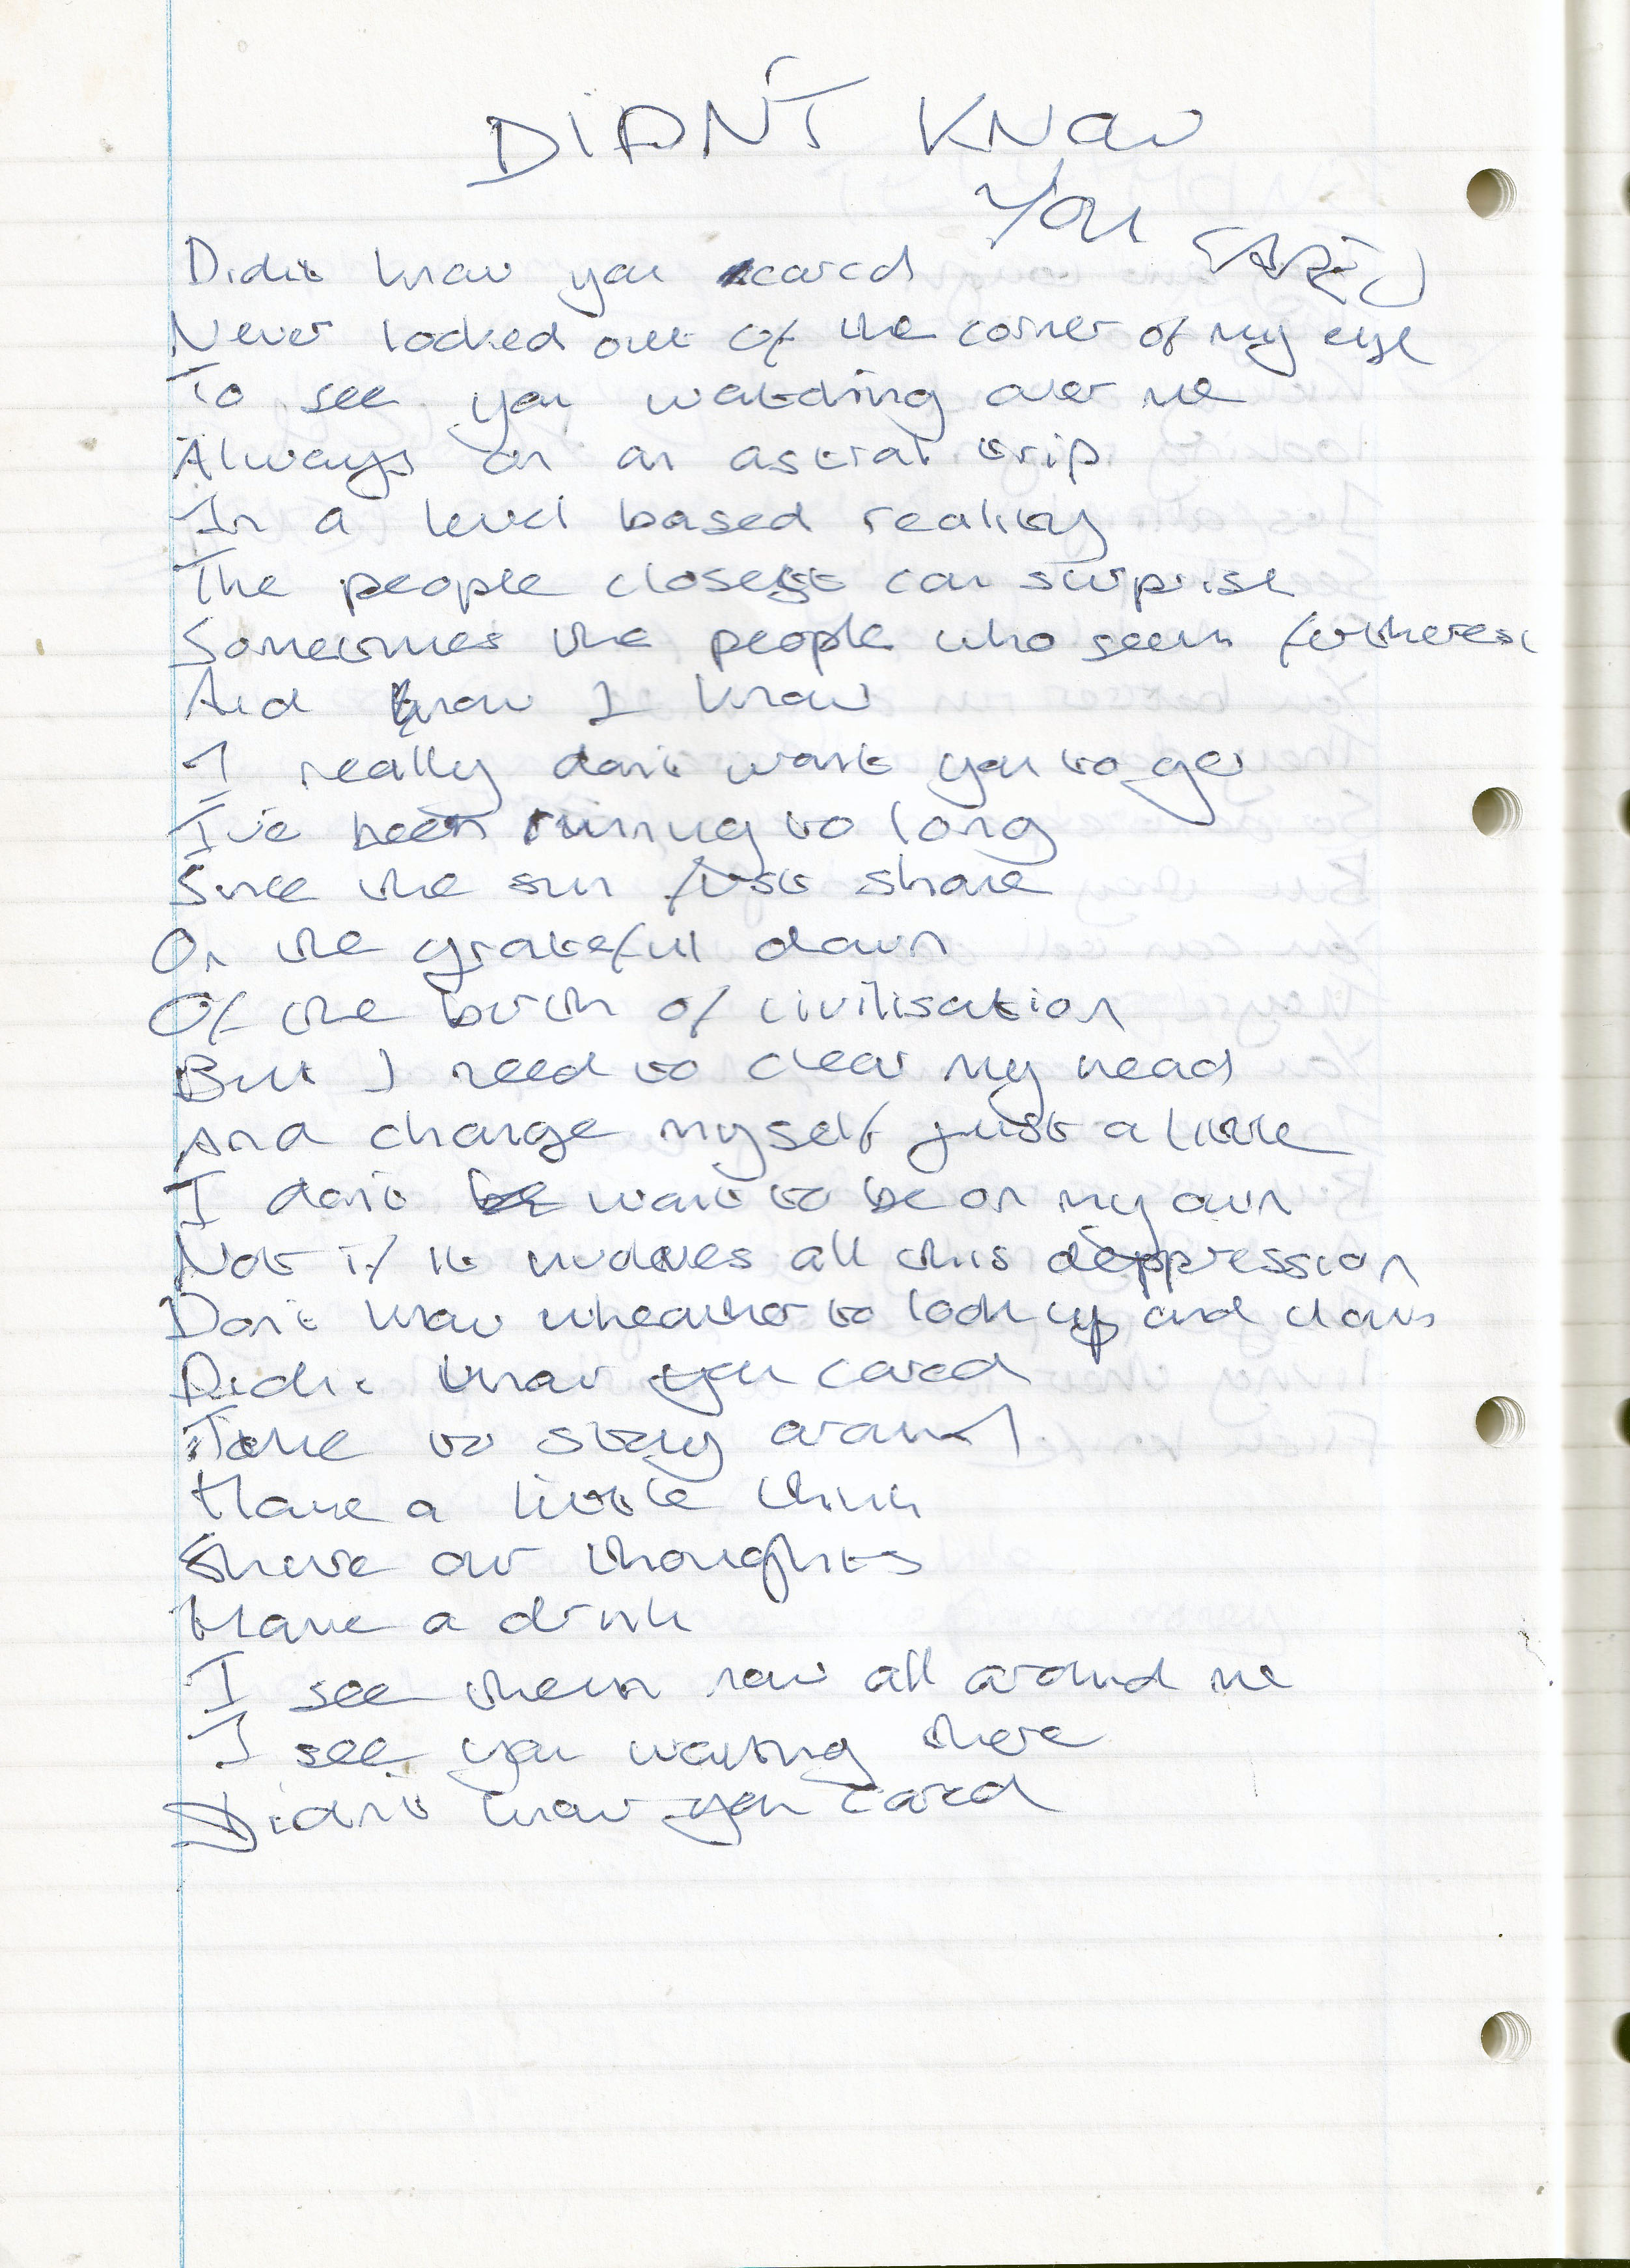 DIDN'T KNOW
YOU CARED
Didn't know you cared
Never looked out of the corner of my eye
To see you watching over me
Always on an astral trip
In a level based reality
The people closest can surprise
Sometimes the people who seem furtherest
And know I know
I really don't want you to go
I've been running to long
Since the sun first shone
On the grateful dawn
Of the birth of civilisation
But I need to clear my head
And change myself just a little
I don't want to be on my own
Not if it involves all this deppression
Don't know wheather to look up and down
Didn't know you cared
Time to stay around
Have a little think
Share our thoughts
Have a drink
I see them now all around me
I see you waiting there
Didn't know you cared